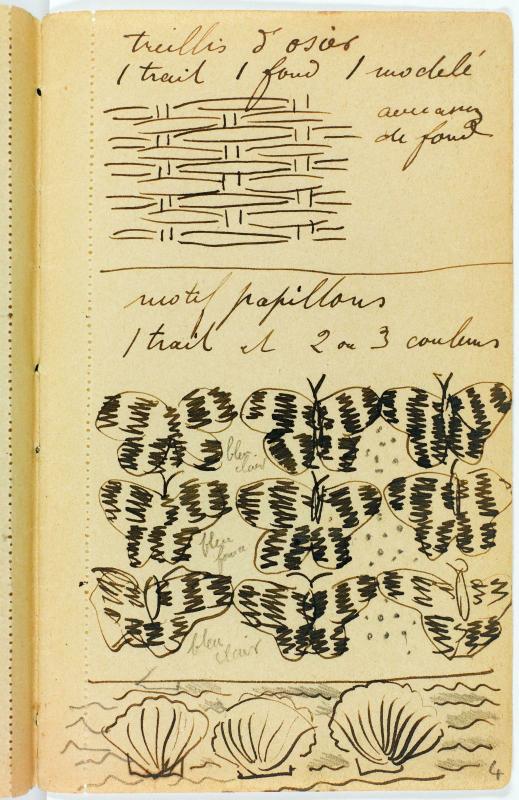 treillis d'osier
1 trait 1 fond 1 modelé
de fond
motif papillons
1 trait et 2 ou 3 couleurs
bleu
clair
bleu
bleu
clair
4